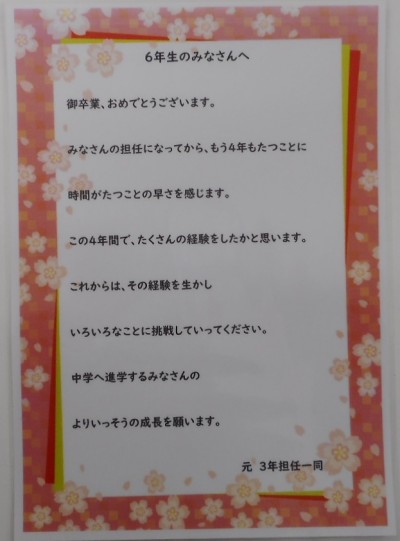 6年生のみなさんへ
御卒業、おめでとうございます。
みなさんの担任になってから、もう4年もたつことに
時間がたつことの早さを感じます。
この4年間で、たくさんの経験をしたかと思います。
これからは、その経験を生かし
いろいろなことに挑戦していってください。
中学へ進学するみなさんの
よりいっそうの成長を願います。
元 3年担任一同